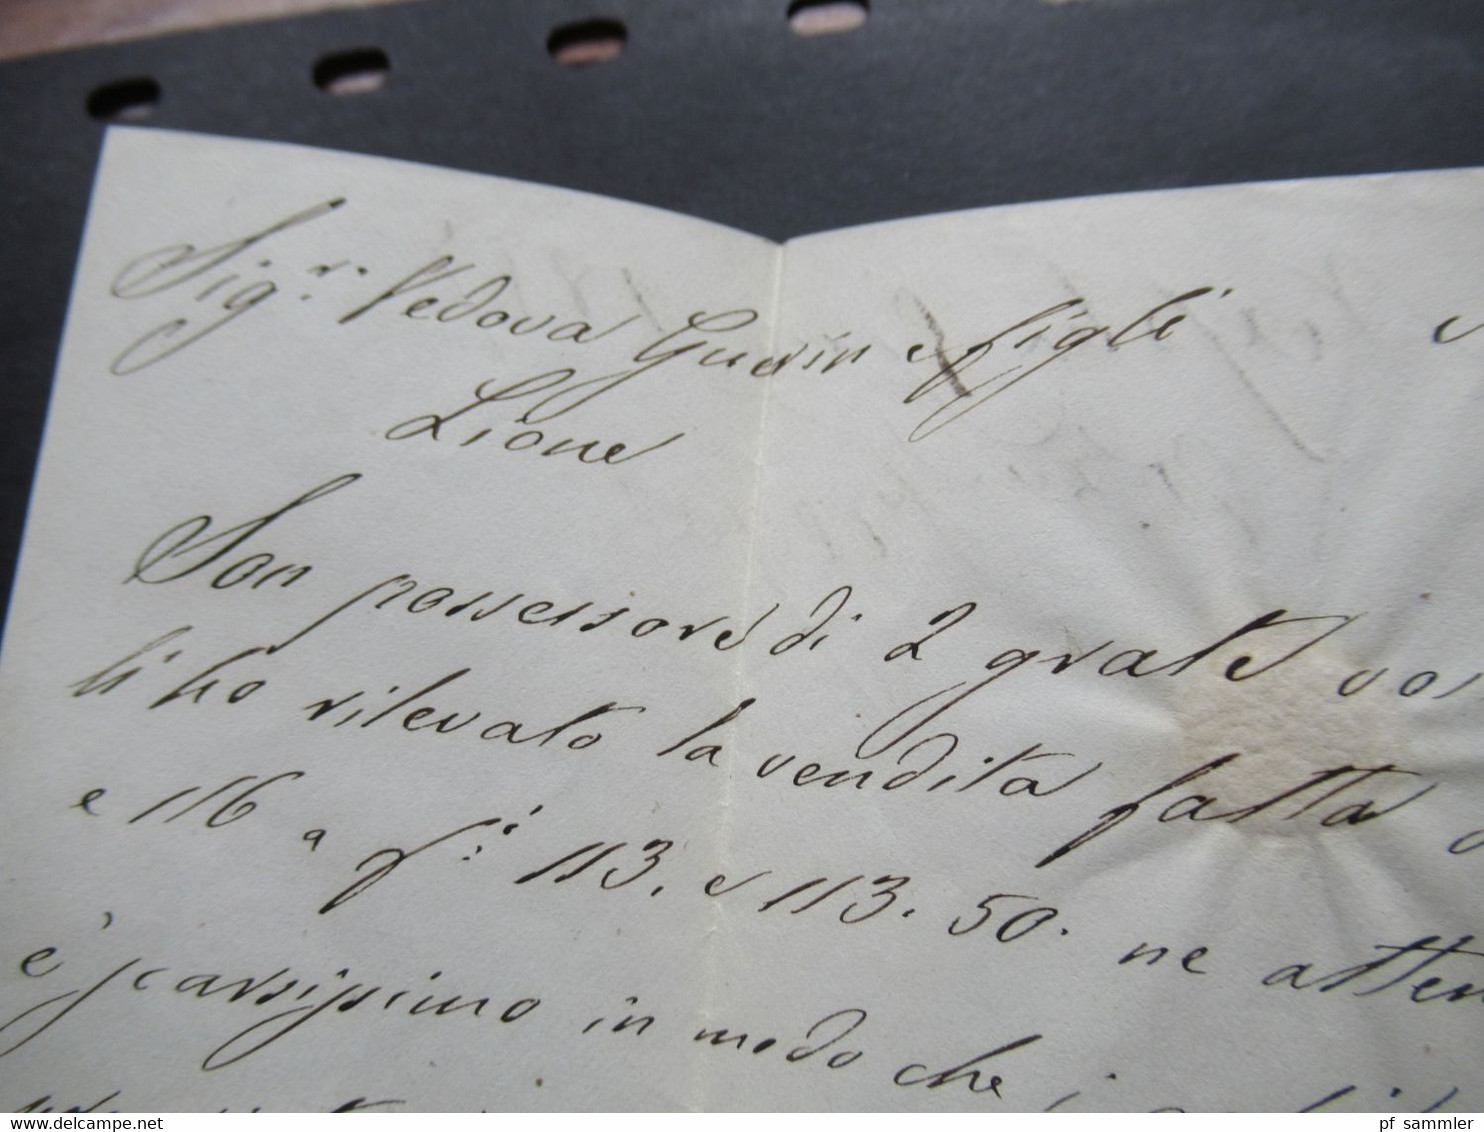 Sig.ri Vedova Guerin e figli
Lione
Son possessore di 2 grate
li ho rilevato la vendita fatta
e 116 a f.i 113. e 113.50. ne
è scarsissimo in modo che i
pf sammler